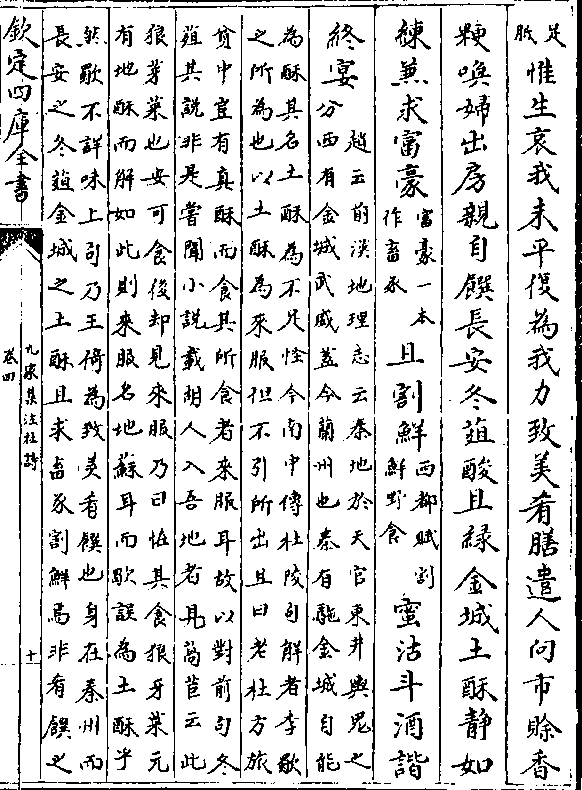 足胝惟生哀我未平復為我力致美肴膳遣人向市賖香
粳喚婦出房親自饌長安冬葅酸且緑金城土酥静如
練兼求富豪富豪一本作畜豕且割鮮西都賦割鮮野食蜜沽斗酒諧
終宴趙云前漢地理志云秦地於天官東井與鬼之
分西有金城武威蓋今蘭州也秦有駞金城自能
為酥其名土酥為不足怪今南中傳杜陵句解者李歜
之所為也以土酥為來服但不引所出且曰老杜方旅
貧中豈有真酥而食其所食者來服耳故以對前句冬
葅其說非是嘗聞小說載胡人入吾地者見萵苣云此
狼芽葉也安可食後却見來服乃曰怪其食狼牙葉元
有地酥而解如此則來服名地蘇耳而歜誤為土酥乎
然歜不詳味上句乃王倚為致美肴饌也身在秦州而
長安之冬葅金城之土酥且求畜豕割鮮焉非肴饌之
欽定四庫全書
九家集注杜詩
卷四
十